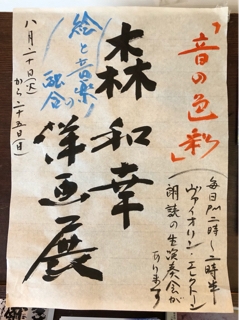 「音の色彩」
毎日PM二時〜二時半
ヴァイオリン・エレクトーン
朗読の生演奏会が
あります
森 和幸
洋画展
絵と音楽の
融合
八月二十日(火)
から二十五日(日)